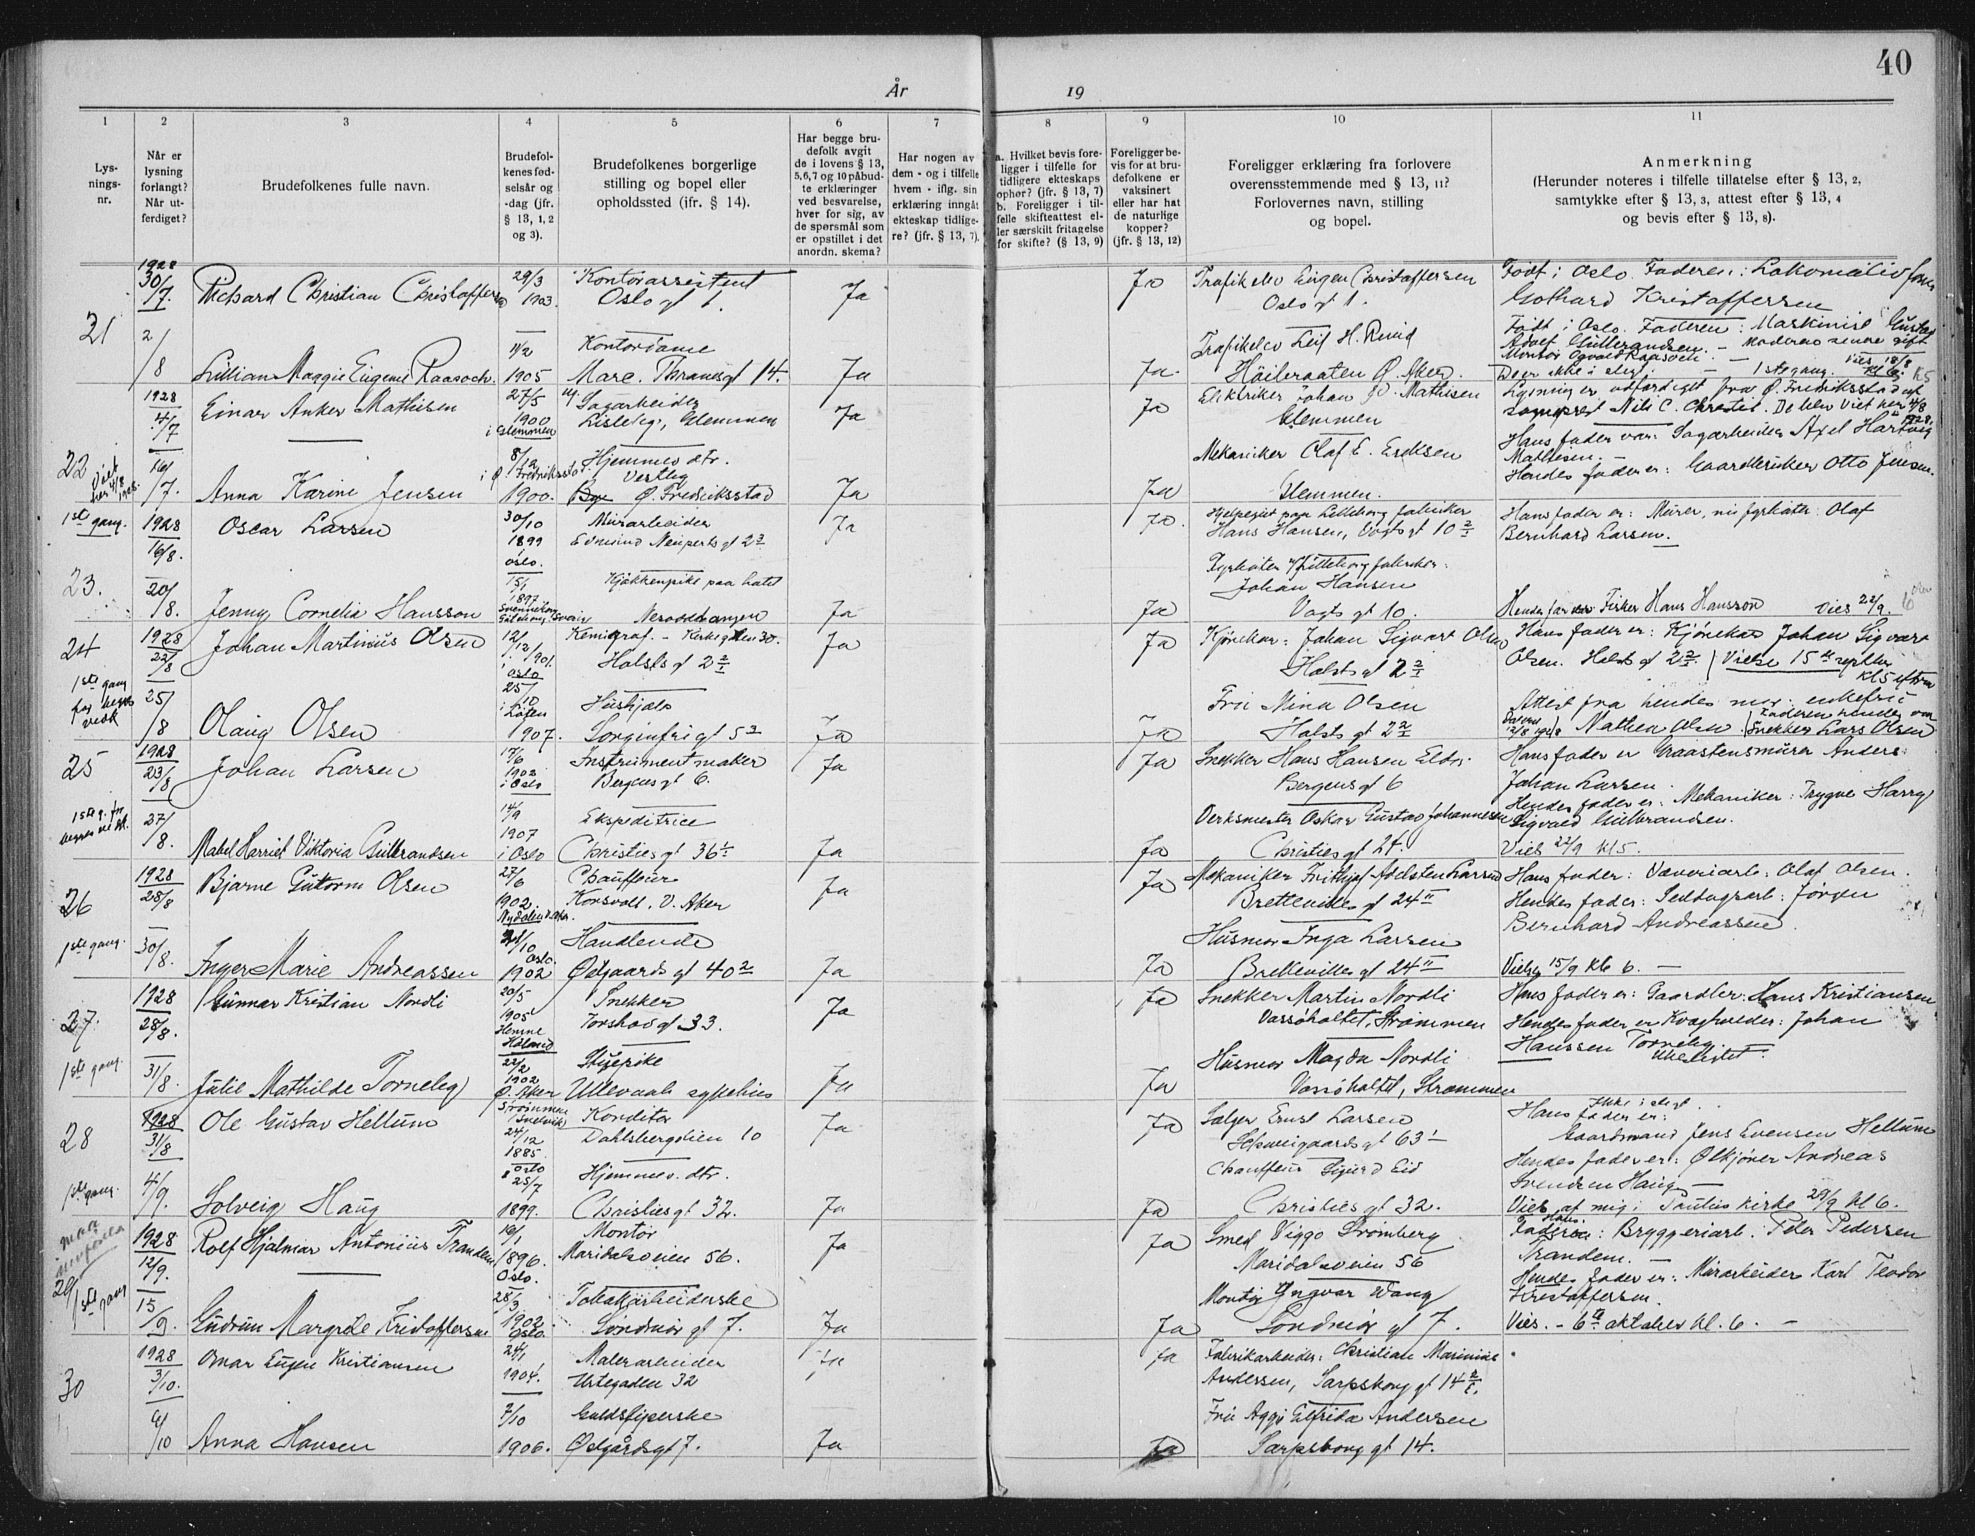 40
År
19
1
2
3
4
5
6
7
8
9
10
11
Lys-
nings-
nr.
Når er
lysning
forlangt?
Når ut-
ferdiget?
Brudefolkenes fulle navn.
Brudefol-
kenes fød-
selsår og
-dag (jfr.
§ 13, 1, 2
og 3).
Brudefolkenes borgerlige
stilling og bopel eller
opholdssted (jfr. § 14).
Har begge bru-
defolk avgit
de i lovens § 13,
5, 6, 7 og 10 påbud-
te erklæringer
ved besvarelse,
hver for sig, av
de spørsmål som
er opstillet i det
anordn. skema?
Har nogen av
dem - og i tilfelle
hvem - iflg. sin
erklæring inngåt
ekteskap tidlige-
re? (jfr. § 13, 7).
a. Hvilket bevis fore-
ligger i tilfelle for
tidligere ekteskaps
ophør? (jfr. § 13, 7)
b. Foreligger i til-
felle skifteattest el-
ler særskilt fritagelse
for skifte? (§ 13, 9)
Foreligger be-
vis for at bru-
defolkene er
vaksinert
eller har hat
de naturlige
kopper?
(jfr. § 13, 12)
Foreligger erklæring fra forlovere
overensstemmende med § 13, 11?
Forlovernes navn, stilling
og bopel.
Anmerkning
(Herunder noteres i tilfelle tillatelse efter § 13, 2,
samtykke efter § 13, 3, attest efter § 13, 4
og bevis efter § 13, 8).
21
1928
30/7.
Richard Christian Christoffersen
29/3
1903.
Kontorassistent
Oslo gt 1.
Ja
Ja
Trafikelev Eugen Christoffersen
Oslo gt 1.
Født i Oslo. Faderen: Lokomotiv
Gothard Kristoffersen
2/8
Lillian Maggie Eugenie Raasoch.
11/2
1905
Kontordame
Marc. Thranes gt 14.
Ja
Ja.
Trafikelev Leif H. Ruud
Høibraaten Ø. Aker.
Født i Oslo. Faderen: Maskinist Gustav
Adolf Gulbrandsen. - Moderen senere gift
Montør Osvald Raasoch. -
De er ikke i slegt. - 1ste gang. Vies 18/8 kl 5
22
Viet
her 4/8
1928.
1928
4/7
Einar Anker Mathisen
27/5
1900
i Glemmen
Sagarbeider
Lisleby, Glemmen
Ja
Ja
Elektriker Johan D. Mathisen
Glemmen
Lysning er utferdiget fra Ø. Fredriksstad af
sogneprest Nils C. Christie. De blev viet her 4/8
1928.
Hans fader var: Sagarbeider Axel Hartvig
Mathisen. -
16/7.
Anna Karine Jensen
8/12
i Ø. Fredriksstad
1900.
Hjemmev. dtr.
Vestby
Ø. Fredriksstad
Ja
Ja
Mekaniker Olaf E. Eriksen
Glemmen.
Hendes fader er: Gaardbruker Otto Jensen.
1ste gang.
23.
1928
16/8.
Oscar Larsen
30/10
1899
Oslo.
Murarbeider
Edmund Neuperts gt 2 3
Ja
Ja.
Hjelpegut paa Lilleborg fabriker
Hans Hansen, Vogts gt 10 2
Hans fader er: Murer, nu fyrbøter Olaf
Bernhard Larsen.
20/8.
Jenny Cornelia Hansson
15/1
1897
Kjøkkenpike paa hotel
Nesoddtangen
Ja
Ja
Fyrbøter v/ Lilleborg fabriker:
Johan Hansen
Vogts gt 10.
Hendes far var Fisker Hans Hansson Vies 22/9.
24
1ste gang
for begges
vedk
1928
22/8
Johan Martinius Olsen
12/12
1901.
i Oslo
Kemigraf. - Kirkegaten 30.
Holsts gt 2 2/1
Ja
Ja
Kjørekar: Johan Sigvart Olsen
Holsts gt 2 2/1
Hans fader er: Kjørekar Johan Sigvart
Olsen. Holsts gt 2 2. / Vielse 15de septbr
kl 5 eftm
25/8
Olaug Olsen
25/10
i Løten
1907.
Hushjelp
Sorgenfri gt 5 3
Ja
Ja
Fru Mina Olsen
Holsts gt 2 2
Attest fra hendes mor: enkefru
Mathea Olsen
Snekker Lars Olsen
25
1ste g. for
begges vedk.
1928
23/8
Johan Larsen
17/6
1902
i Oslo
Instrumentmaker
Bergens gt 6.
Ja
Ja
Snekker Hans Hansen Eldri
Bergens gt 6
Hans fader er Graastensmurer Anders
Johan Larsen.
27/8.
Mabel Harriet Viktoria Gulbrandsen
14/9
1907
i Oslo
Ekspeditrice
Christies gt 36 1
Ja
Ja
Verksmester Oskar Gustav Johannesen
Christies gt 21.
Hendes fader er: Mekaniker: Trygve Harry
Sigvald Gulbrandsen.
Vies 22/9 kl 5.
26
1ste gang.
1928
28/8
Bjarne Guttorm Olsen
27/6
1902.
Chauffeur
Korsvoll, V. Aker
Ja
Ja
Mekaniker Frithjof Adelsten Larsen
Bretteville gt 24 II
Hans fader: Væveriarb: Olaf Olsen.
30/8.
Inger Marie Andreassen
21/10
Oslo.
1902
Handlende
Østgaards gt 40 2
Ja
Ja
Husmor Inga Larsen
Brettevilles gt 24 II
Hendes fader: Seildugsarb: Jørgen
Bernhard Andreassen.
Vielse 15/9 kl 6. -
27.
1ste gang.
1928
28/8.
Gunnar Kristian Nordli
20/5
1905
Snekker
Torshov gt 33.
Ja
Ja
Snekker Martin Nordli
Vassøholtet, Strømmen
Hans fader er: Gaardbr: Hans Kristiansen
31/8.
Julie Mathilde Torneby
22/2
1902
Ø. Aker
Stuepike
Ullevaals sykehus
Ja
Ja
Husmor Magda Nordli
Vassøholtet, Strømmen
Hendes fader er Kvægholder: Johan
Hanssen Torneby.
28
1ste gang.
1928
31/8
Ole Gustav Hellum
24/12
1885.
Konditor
Dahlsbergstien 10
Ja
Ja
Sælger Ernst Larsen
Schweigaards gt 63 1
Ikke i slegt.
Hans fader er:
Gaardmand Jens Evensen Hellum
4/9.
Solveig Haug
Oslo
25/7
1899.
Hjemmev. dtr.
Christies gt 32.
Ja
Ja
Chauffeur Sigurd Eid
Christies gt 32.
Hendes fader er: Ølkjører Andreas
Svendsen Haug -
Vies af mig i Paulus kirke 29/9 kl 6.
29
1ste gang
1928
12/9.
Rolf Hjalmar Antonius Trandem
16/1
1896.
Oslo.
Montør
Maridalsveien 56.
Ja
Ja
Smed Viggo Strømberg
Maridalsveien 56
Hans
Faderen: Bryggeriarb. Peder Pedersen
Trandem. -
15/9.
Gudrun Margrete Kristoffersen
28/3
1902
Oslo.
Tobakarbeiderske
Søndmør gt 7.
Ja
Ja
Montør Yngvar Wang
Søndmør gt 7.
Hendes fader er: Murarbeider Karl Teodor
Kristoffersen.
Vies. - 6te oktober kl. 6. -
30
1928
3/10.
Omar Eugen Kristiansen
24/1
1904.
Malerarbeider
Urtegaden 32
Ja
Ja
Fabrikarbeider: Christian Marinius
Andersen, Sarpsborg gt 14 2/1.
6/10
Anna Hansen
7/10
1906.
Guldsliperske
Østgårds gt 7.
Ja
Ja
Fru Aggi Elfrida Andersen
Sarpsborg gt 14.